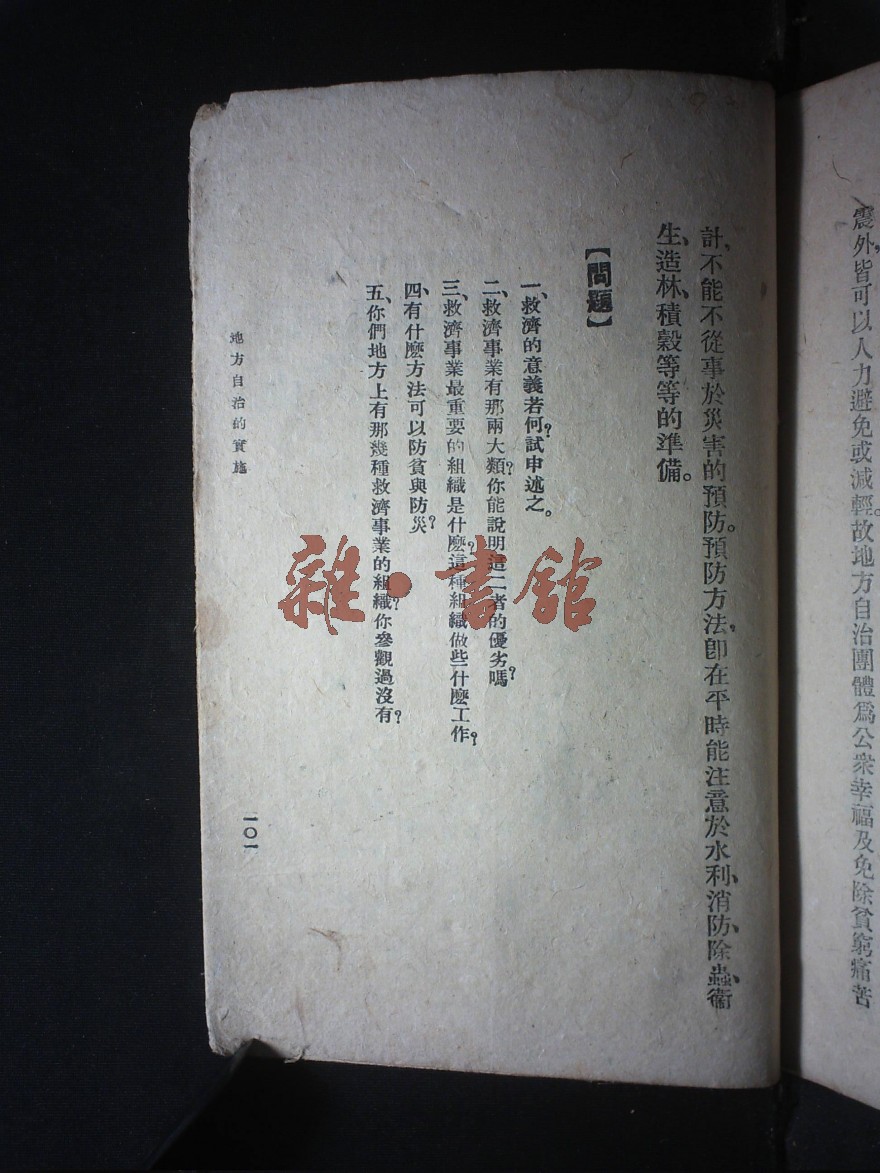 震外,皆可以人力避免或減輕。故地方自治團體爲公衆幸福及免除貧窮痛苦
計,不能不從事於災害的預防。預防方法,卽在平時能注意於水利、消防、除蟲、衞
生、造林、積穀等等的準備。
【問題】
一、救濟的意義若何?試申述之。
二、救濟事業有那兩大類?你能說明這二者的優劣嗎?
三、救濟事業最重要的組織是什麽?這種組織做些什麽工作?
四、有什麽方法可以防貧與防災?
五、你們地方上有那幾種救濟事業的組織?你參觀過沒有?
地方自治的實施
一〇一
雜·書館